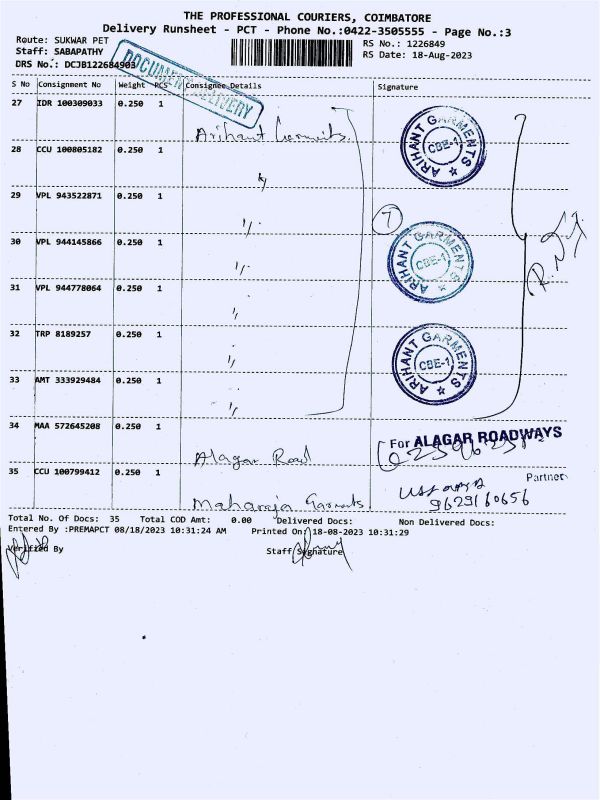 THE PROFESSIONAL COURIERS, COIMBATORE
Delivery Runsheet - PCT - Phone No.:0422-3505555 - Page No.:3
Route: SUKWAR PET
RS No.: 1226849
Staff: SABAPATHY
RS Date: 18-Aug-2023
DRS No.: DCJB122684903
DOCUMENT DELIVERY
S No Consignment No Weight PCS Consignee Details Signature
27 IDR 100309033 0.250 1 Arihant Garments
ARIHANT GARMENTS CBE-1
28 CCU 100805182 0.250 1 "
29 VPL 943522871 0.250 1 "
7
30 VPL 944145866 0.250 1 "
ARIHANT GARMENTS CBE-1
31 VPL 944778064 0.250 1 "
32 TRP 8189257 0.250 1 "
ARIHANT GARMENTS CBE-1
33 AMT 333929484 0.250 1 "
34 MAA 572645208 0.250 1 Alagar Road
For ALAGAR ROADWAYS
Partner
35 CCU 100799412 0.250 1 Maharaja Garments
9629160656
Total No. Of Docs: 35 Total COD Amt: 0.00 Delivered Docs: Non Delivered Docs:
Entered By :PREMAPCT 08/18/2023 10:31:24 AM Printed On: 18-08-2023 10:31:29
Verified By Staff Signature